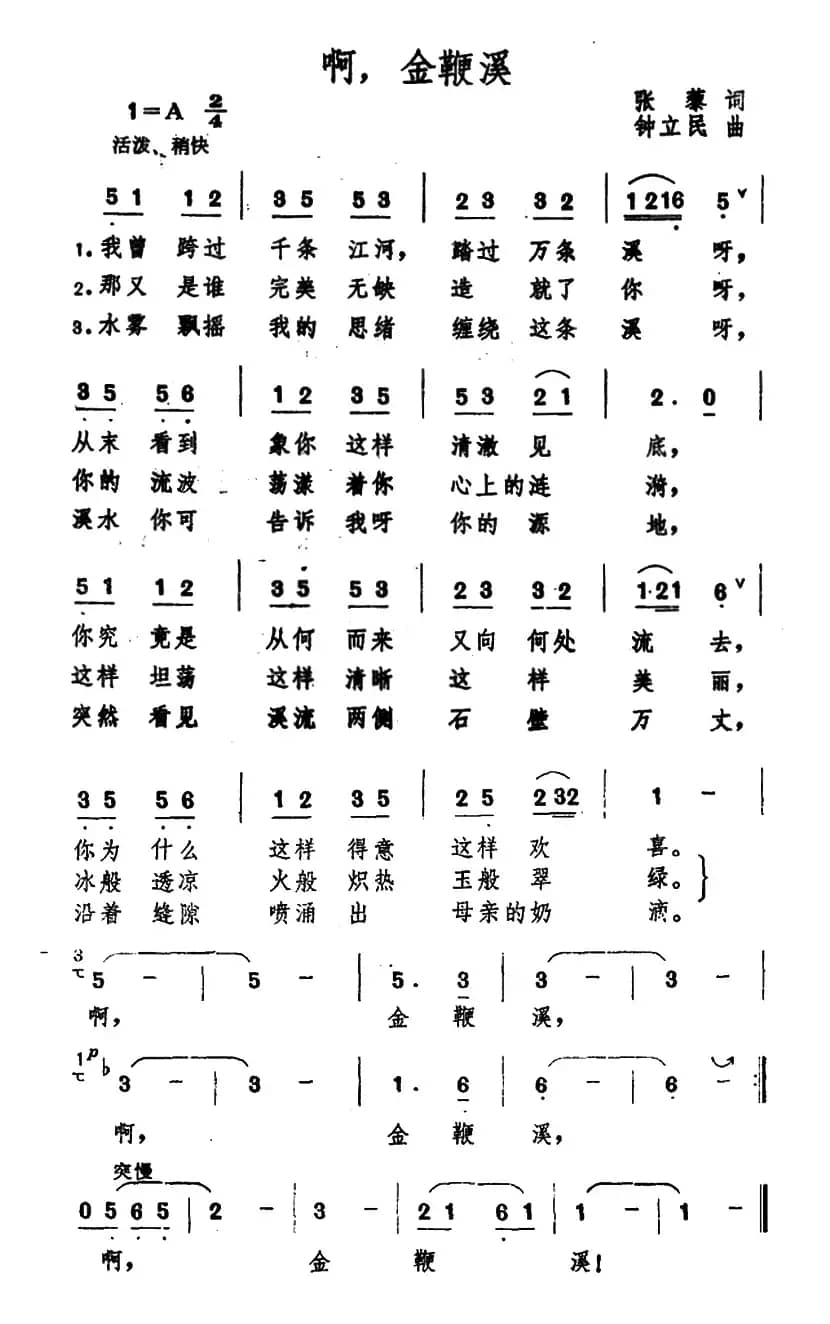 啊，金鞭溪
1=A 2/4
张藜 词
活泼、稍快
钟立民 曲
5 1 1 2 | 3 5 5 3 | 2 3 3 2 | 1216 5 ∨ |
1.我曾 跨过 千条 江河， 踏过 万条 溪 呀，
2.那又 是谁 完美 无缺 造 就了 你 呀，
3.水雾 飘摇 我的 思绪 缠绕 这条 溪 呀，
3 5 5 6 | 1 2 3 5 | 5 3 2 1 | 2. 0 |
从末 看到 象你 这样 清澈 见 底，
你的 流波 荡漾 着你 心上的涟 漪，
溪水 你可 告诉 我呀 你的 源 地，
5 1 1 2 | 3 5 5 3 | 2 3 3·2 | 1·21 6 ∨ |
你究 竟是 从何 而来 又向 何处 流 去，
这样 坦荡 这样 清晰 这 样 美 丽，
突然 看见 溪流 两侧 石 壁 万 丈，
3 5 5 6 | 1 2 3 5 | 2 5 232 | 1 - |
你为 什么 这样 得意 这样 欢 喜。
冰般 透凉 火般 炽热 玉般 翠 绿。
沿着 缝隙 喷涌 出 母亲的奶 滴。
3 5 - | 5 - | 5. 3 | 3 - | 3 - |
啊， 金 鞭 溪，
1 p 3 - | 3 - | 1. 6 | 6 - | 6 - :‖
啊， 金 鞭 溪，
突慢
0 5 6 5 | 2 - | 3 - | 2 1 6 1 | 1 - | 1 - ‖
啊， 金 鞭 溪！